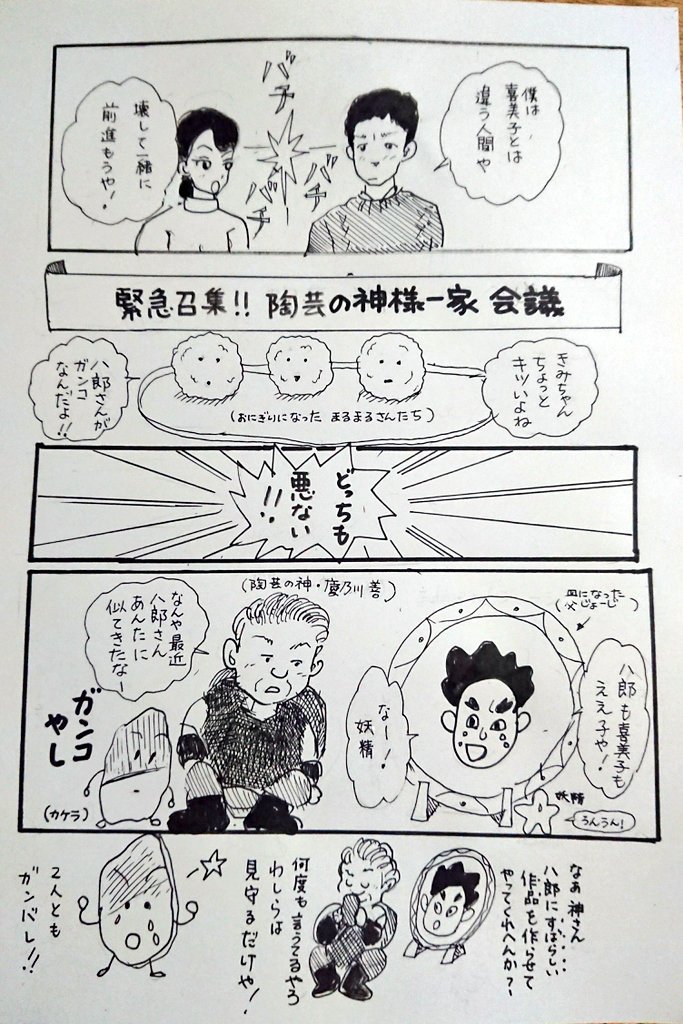 僕は
喜美子とは
違う人間や
バチ
バチ
バチ
壊して一緒に
前進もうや！
緊急召集!! 陶芸の神様一家 会議
きみちゃん
ちょっと
キツいよね
八郎さんが
ガンコ
なんだよ!!
(おにぎりになった まるまるさんたち)
どっちも
悪ない
!!
(皿になった
父じょーじ)
八郎も喜美子も
ええ子や！
なー！
妖精
妖精
うんうん！
(陶芸の神・慶乃川 善)
なんや最近
八郎さん
あんたに
似てきたなー
ガンコ
やし
(カケラ)
なあ神さん
八郎にすばらしい
作品を作らせて
やってくれへんか？
何度も言うてるやろ
わしらは
見守るだけや！
2人とも
ガンバレ!!